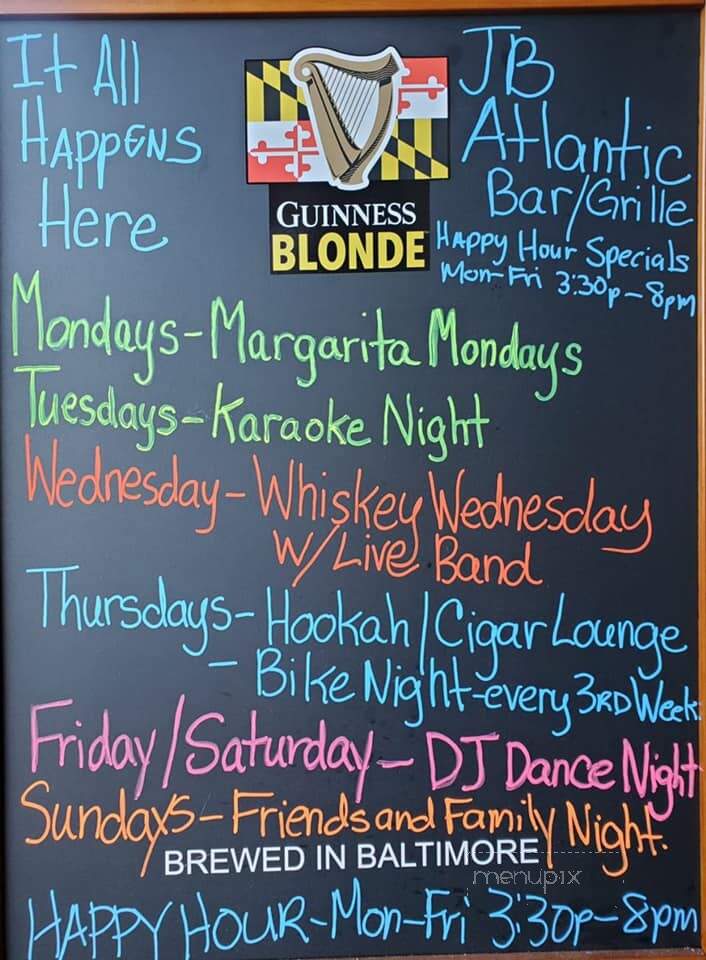 It All
Happens
Here
GUINNESS
BLONDE
JB
Atlantic
Bar/Grille
Happy Hour Specials
Mon-Fri 3:30p-8pm
Mondays-Margarita Mondays
Tuesdays-Karaoke Night
Wednesday-Whiskey Wednesday
w/Live Band
Thursdays-Hookah/Cigar Lounge
- Bike Night-every 3RD Week
Friday/Saturday-DJ Dance Night
Sundays-Friends and Family Night.
BREWED IN BALTIMORE
menupix
HAPPY HOUR-Mon-Fri 3:30p-8pm